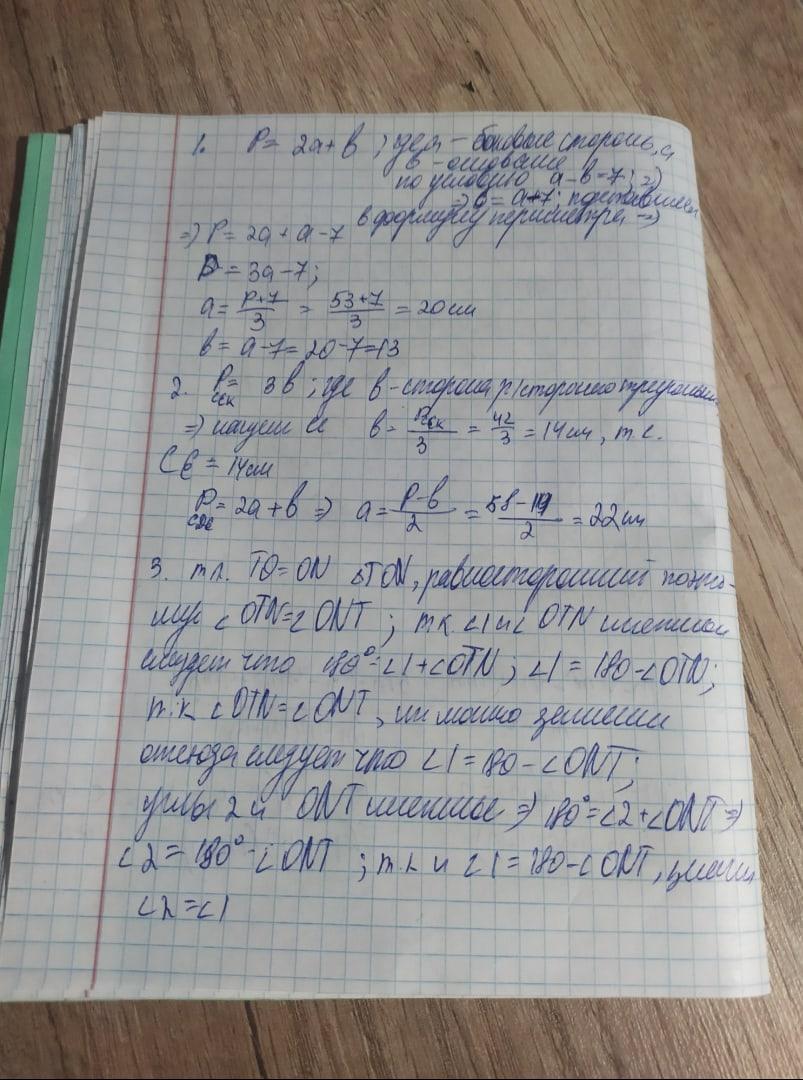 1. P = 2a + b ; где a - боковые стороны, а
b - основание
по условию a - b = 7 ; =>
=> b = a - 7 ; подставляем
в формулу периметра =>
=> P = 2a + a - 7
P = 3a - 7 ;
a = P+7/3 = 53+7/3 = 20 см
b = a - 7 = 20 - 7 = 13
2. P = 3b ; где b - сторона р/стороннего
=> b = 42/3 = 14 см, т.е.
CE = 14 см
P = 2a + b => a = P-b/2 = 58-14/2 = 22 см
3. т.к. TO = ON ΔTON, равносторонний поэто-
му ∠OTN = ∠ONT ; т.к. ∠1 и ∠OTN смежные
следует что 180° = ∠1 + ∠OTN ; ∠1 = 180 - ∠OTN ;
т.к ∠OTN = ∠ONT, их можно
отсюда следует что ∠1 = 180 - ∠ONT ;
углы 2 и ONT смежные => 180° = ∠2 + ∠ONT =>
∠2 = 180° - ∠ONT ; т.к и ∠1 = 180 - ∠ONT,
∠2 = ∠1